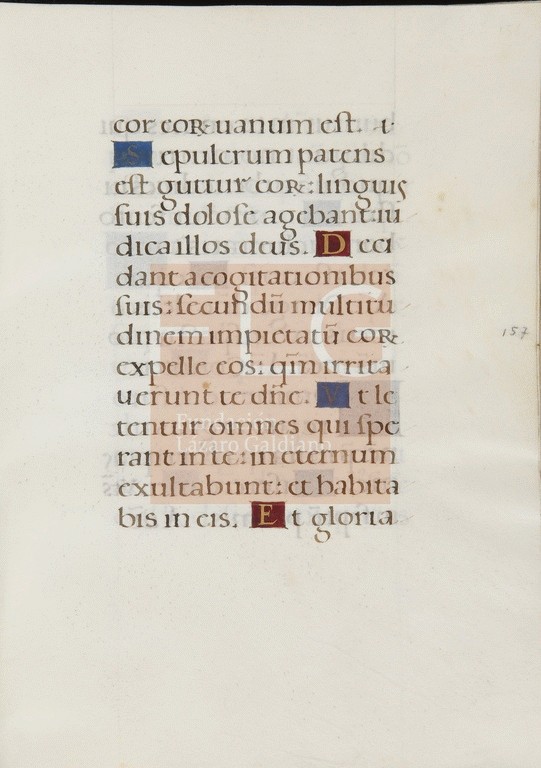 cor coꝛ uanum est. t
Sepulcrum patens
est guttur coꝛ: linguis
suis dolose agebant: iu
dica illos deus. Deci
dant a cogitationibus
suis: secundū multitu
dinem impietatū coꝛ
expelle eos: qm̄ irrita
uerunt te dn̄e. Vt le
tentur omnes qui spe
rant in te: in eternum
exultabunt: et habita
bis in eis. Et gloria
157
FLG
Fundación
Lázaro Galdiano